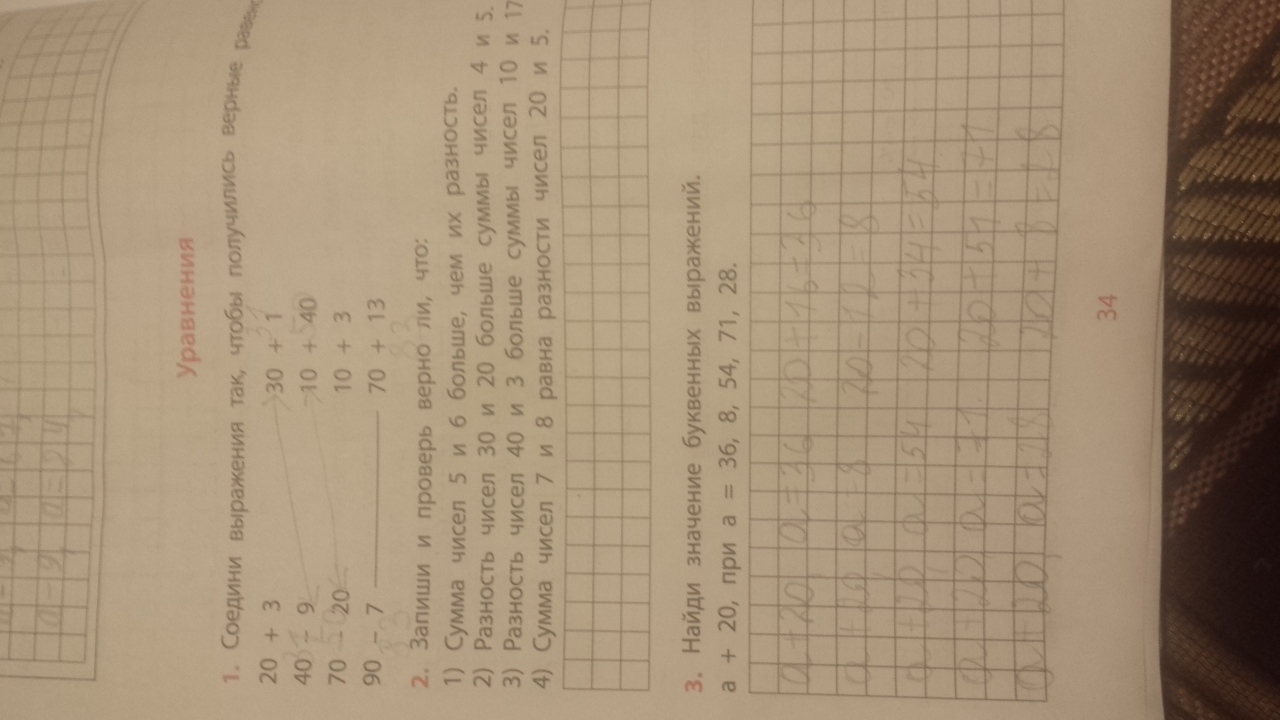 Уравнения
1. Соедини выражения так, чтобы получились верные
20 + 3 30 + 1
40 - 9 10 + 40
70 - 20 10 + 3
90 - 7 70 + 13
2. Запиши и проверь верно ли, что:
1) Сумма чисел 5 и 6 больше, чем их разность.
2) Разность чисел 30 и 20 больше суммы чисел 4 и 5.
3) Разность чисел 40 и 3 больше суммы чисел 10 и 17
4) Сумма чисел 7 и 8 равна разности чисел 20 и 5.
3. Найди значение буквенных выражений.
а + 20, при а = 36, 8, 54, 71, 28.
a + 20, a = 36 20 + 16 = 36
a + 20 a = 8 20 - 12 = 8
a + 20, a = 54 20 + 34 = 54
a + 20 a = 71. 20 + 51 = 71
a + 20, a = 28. 20 + 8 = 28
34